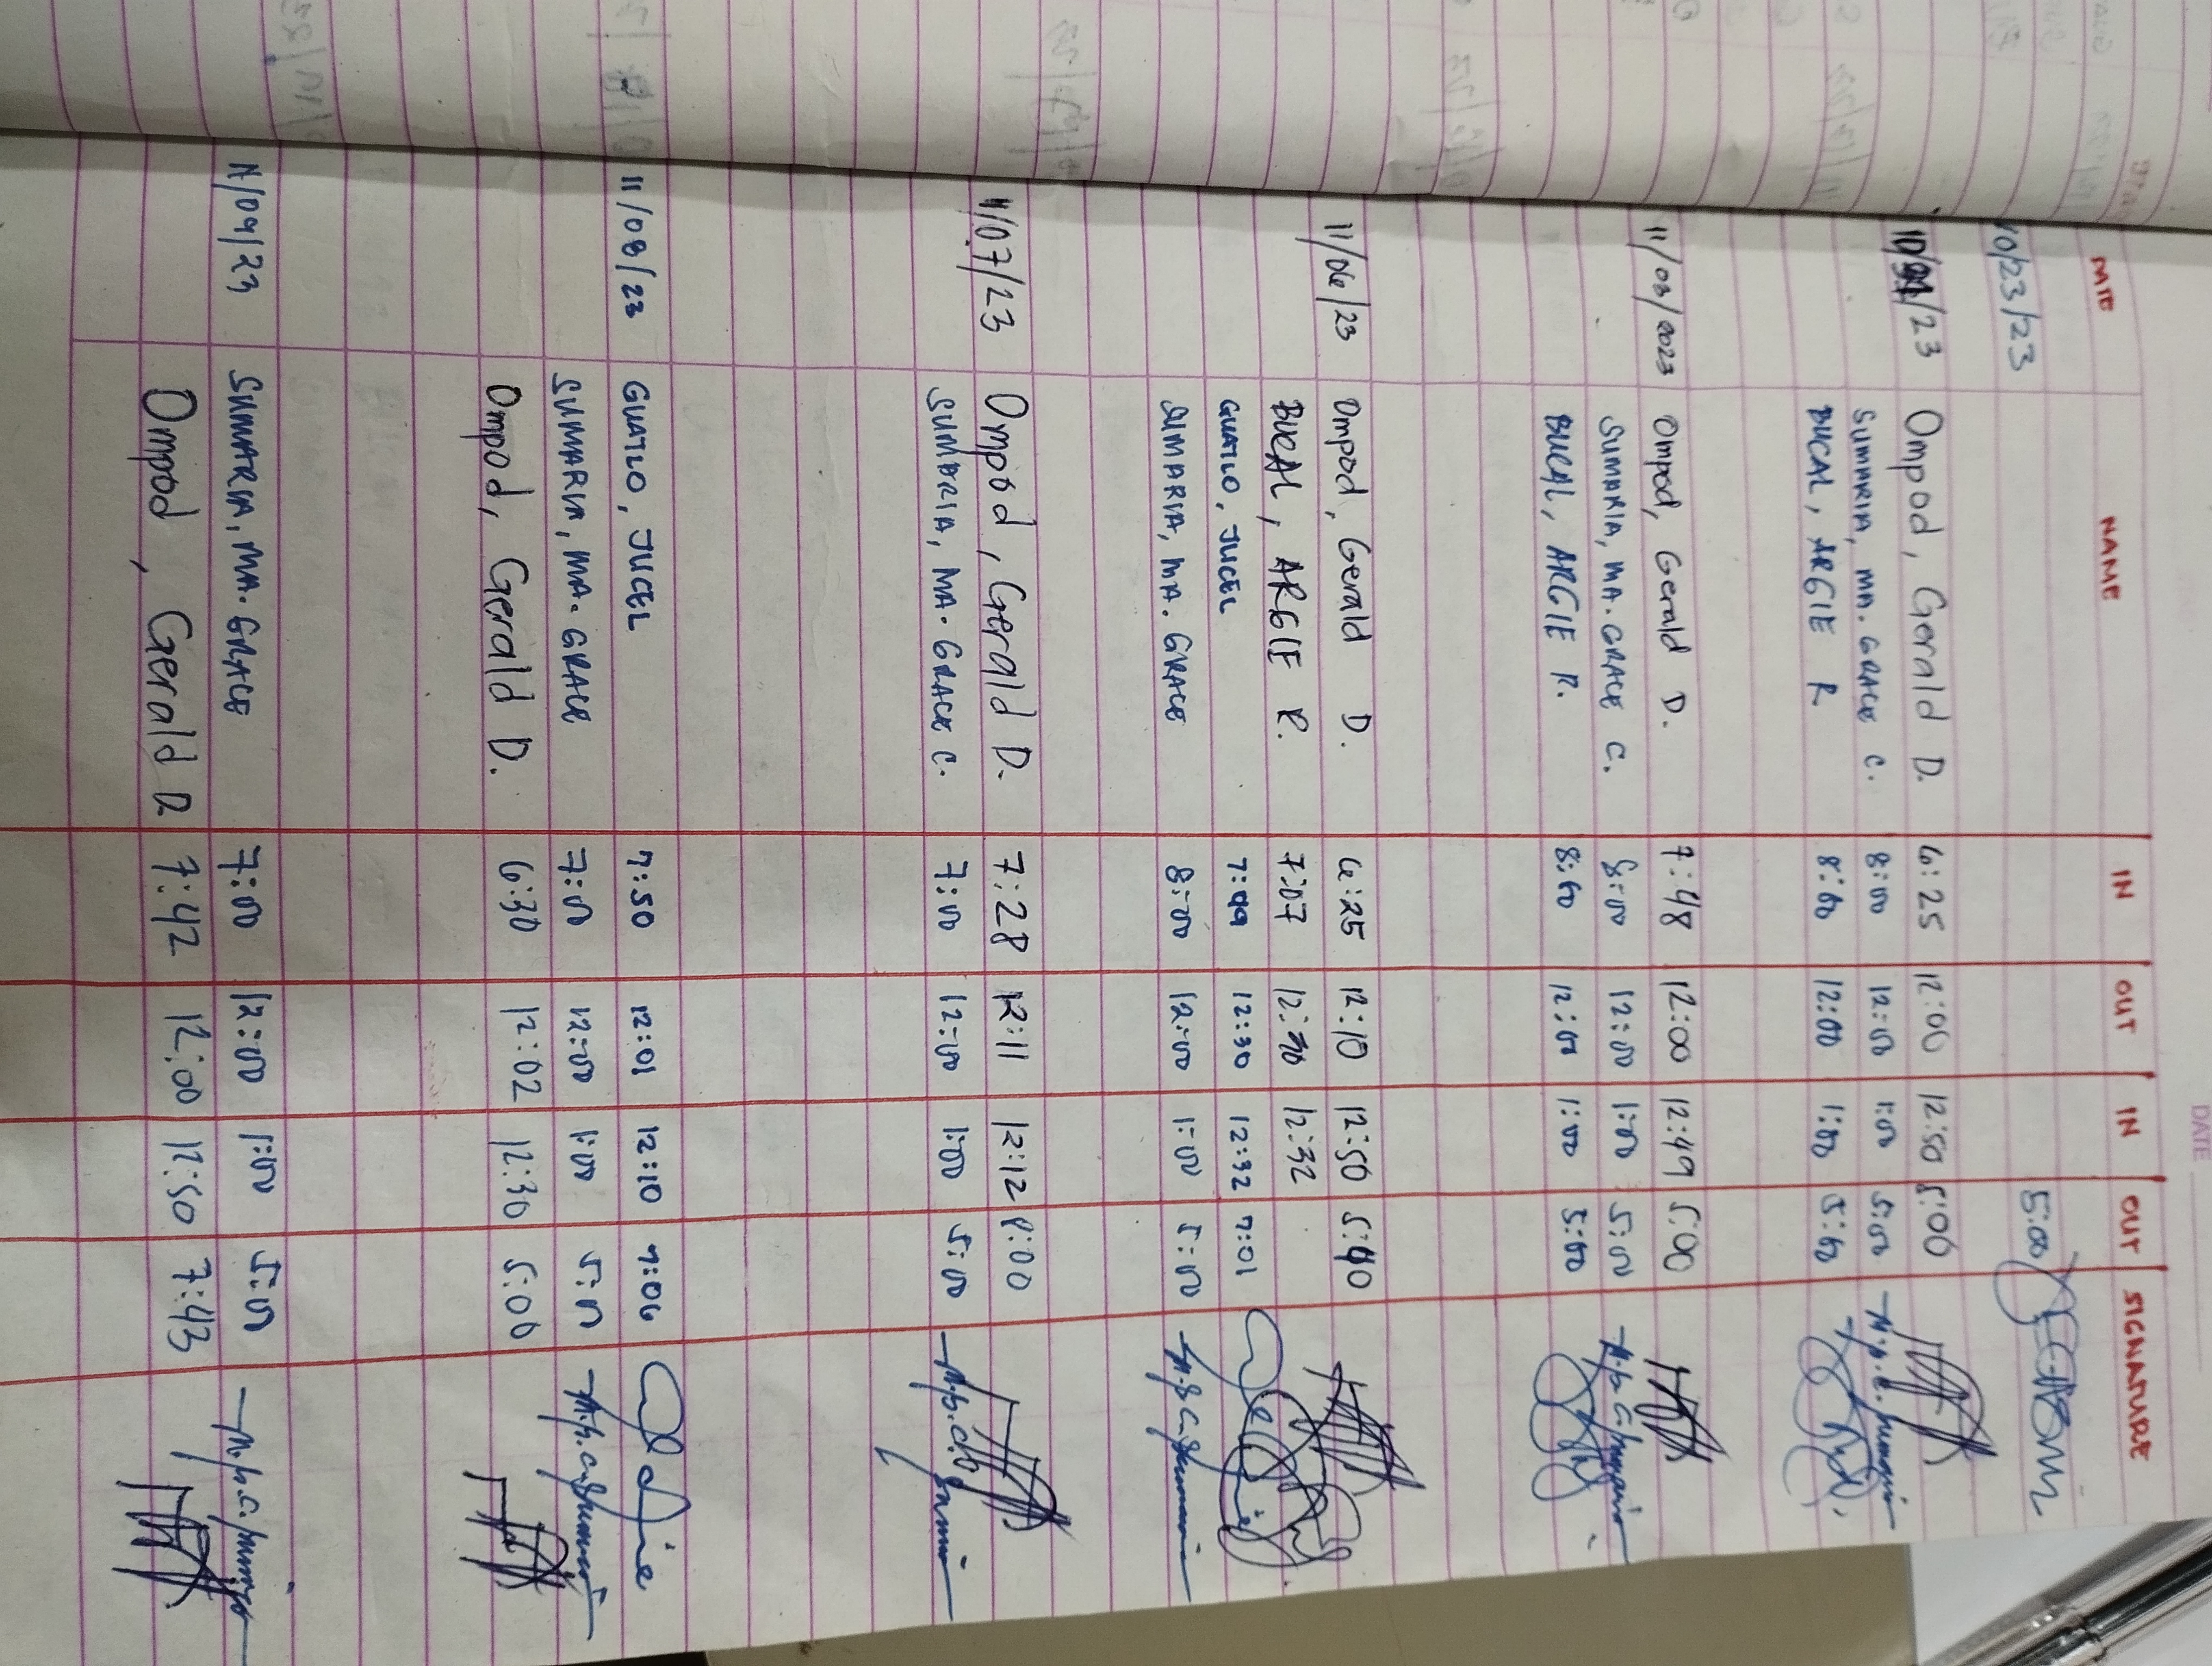 DATE NAME IN OUT IN OUT SIGNATURE
10/23/23 5:00
/23 Ompod, Gerald D. 6:25 12:00 12:50 5:00
SUMARIA, MA. GRACE C. 8:00 12:00 1:00 5:00
BUCAL, ARGIE R 8:00 12:00 1:00 5:00
11/03/2023 Ompod, Gerald D. 7:48 12:00 12:49 5:00
SUMARIA, MA. GRACE C. 8:00 12:00 1:00 5:00
BUCAL, ARGIE R. 8:00 12:00 1:00 5:00
11/06/23 Ompod, Gerald D. 6:25 12:10 12:50 5:40
BUCAL, ARGIE R. 7:07 12:30 12:32
GUATLO, JUCEL 7:09 12:30 12:32 7:01
SUMARIA, MA. GRACE 8:00 12:00 1:00 5:00
11/07/23 Ompod, Gerald D. 7:28 12:11 12:12 8:00
SUMARIA, MA. GRACE C. 7:00 12:00 1:00 5:00
11/08/23 GUATLO, JUCEL 7:50 12:01 12:10 7:06
SUMARIA, MA. GRACE 7:00 12:00 1:00 5:00
Ompod, Gerald D. 6:30 12:02 12:30 5:00
11/09/23 SUMARIA, MA. GRACE 7:00 12:00 1:00 5:00
Ompod, Gerald D 7:42 12:00 12:50 7:43
DATE